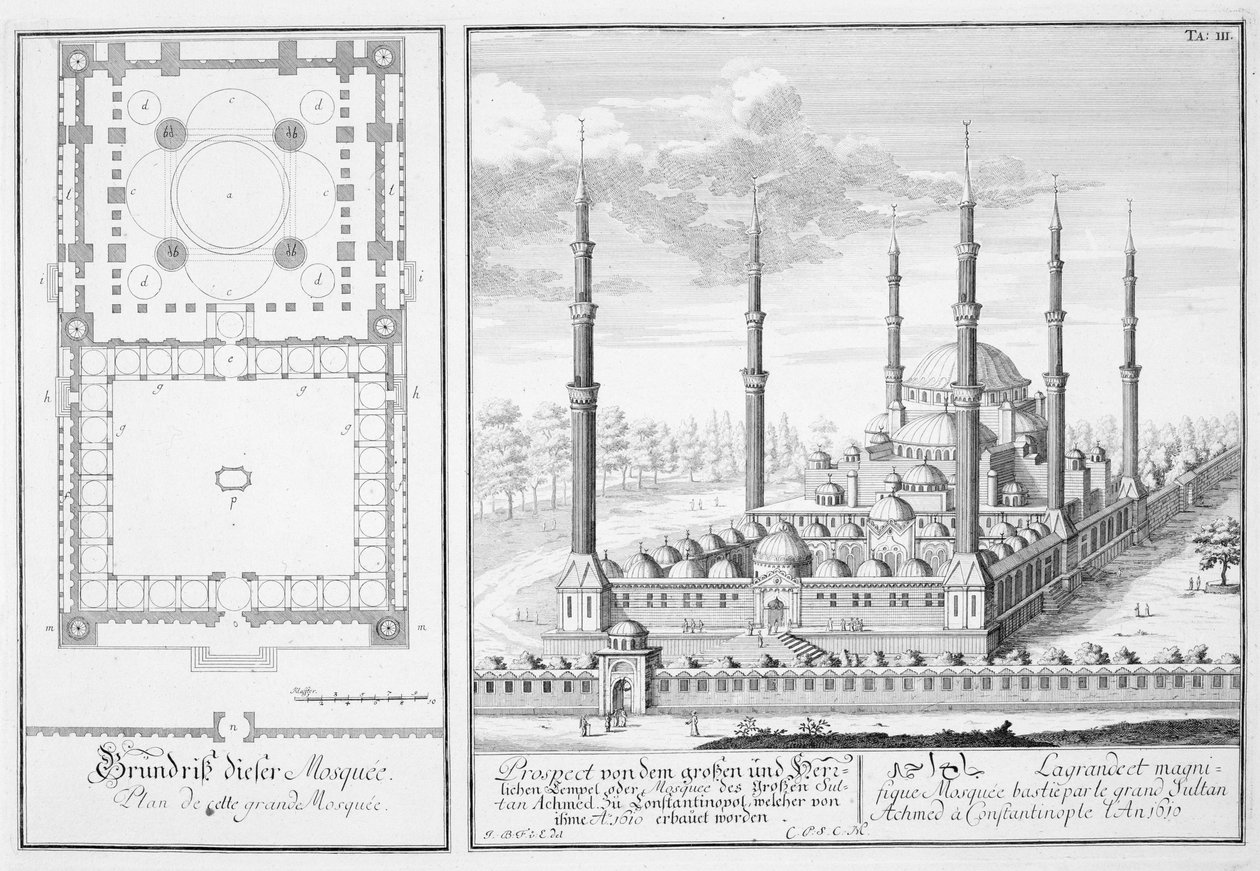 c
d d
c a c
l l
i d d i
c
e
g g
h h
g g
f
p
m o m
1 3 5 7 9
2 4 6 8 10
n
Gründriß dieser Mosquée.
Plan de cette grande Mosquée.
TA: III.
Prospect von dem großen ünd Herr=
lichen Tempel oder Mosquée des Großen Sul=
tan Achmed. Zü Constantinopol, welcher von
ihme Aº 1610 erbaüet worden.
J. B. F. v. E. del
C. P. S. C. M.
La grande et magni=
fique Mosquée bastie par le grand Sultan
Achmed à Constantinople l'An 1610